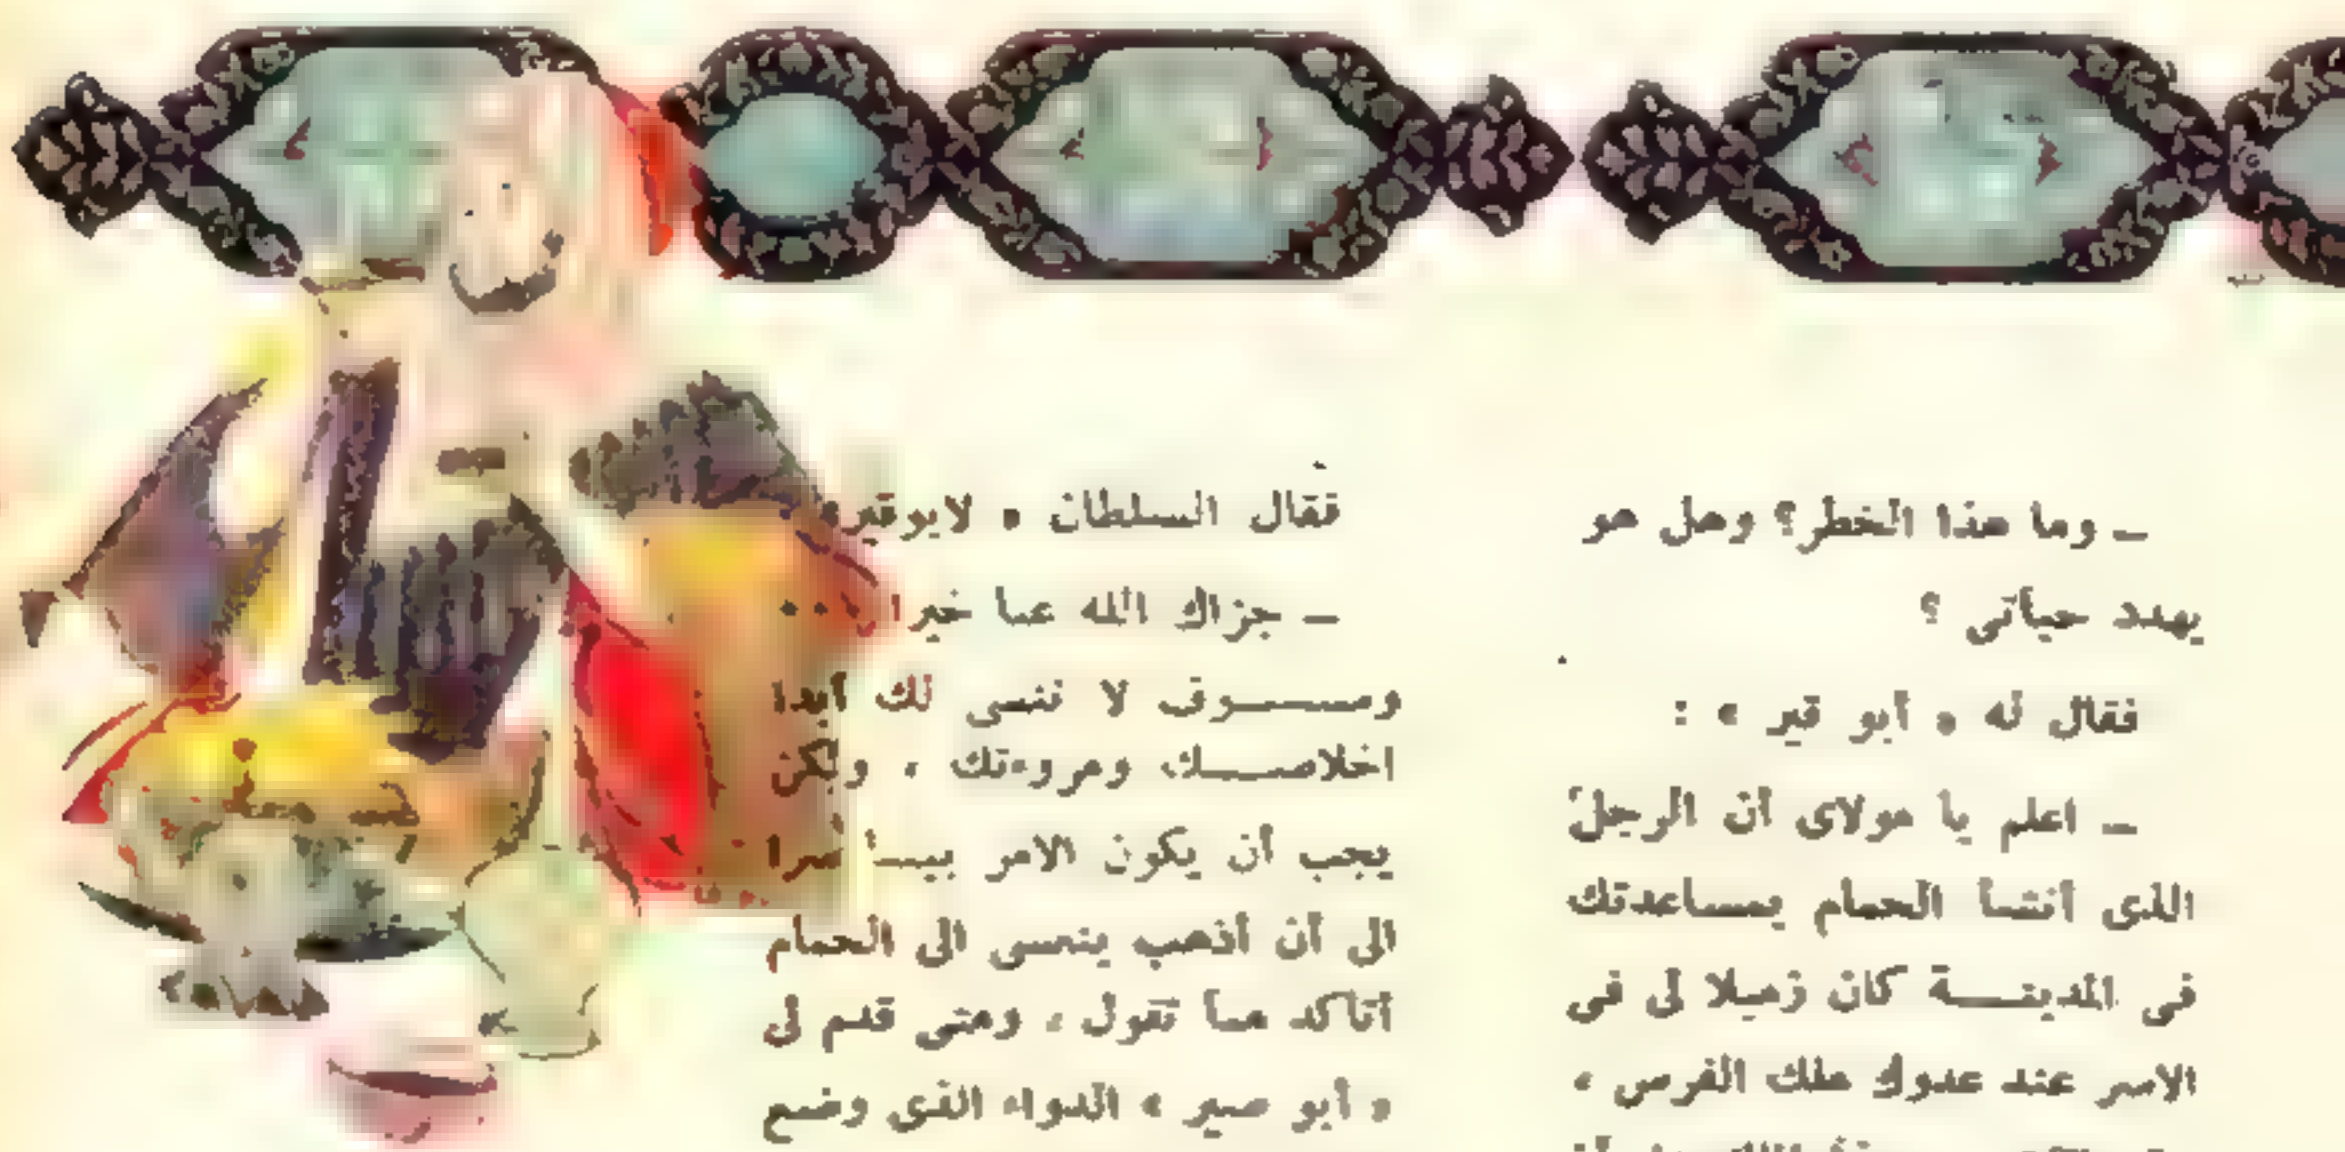 ـ وما هذا الخطر؟ وهل هو
يهدد حياتى ؟
فقال له « أبو قير » :
ـ اعلم يا مولاى أن الرجل
الذى أنشأ الحمام بمساعدتك
فى المدينـــة كان زميلا لى فى
الاسر عند عدوك ملك الفرس ،
فقال السلطان « لابوقير»
ـ جزاك الله عنا خيرا ..
وســـوف لا ننسى لك أبدا
اخلاصـــك ومروءتك ، ولكن
يجب أن يكون الامر بيننا سرا
الى أن أذهب بنفسى الى الحمام
أتأكد مما تقول ، ومتى قدم لى
« أبو صير » الدواء الذى وضع